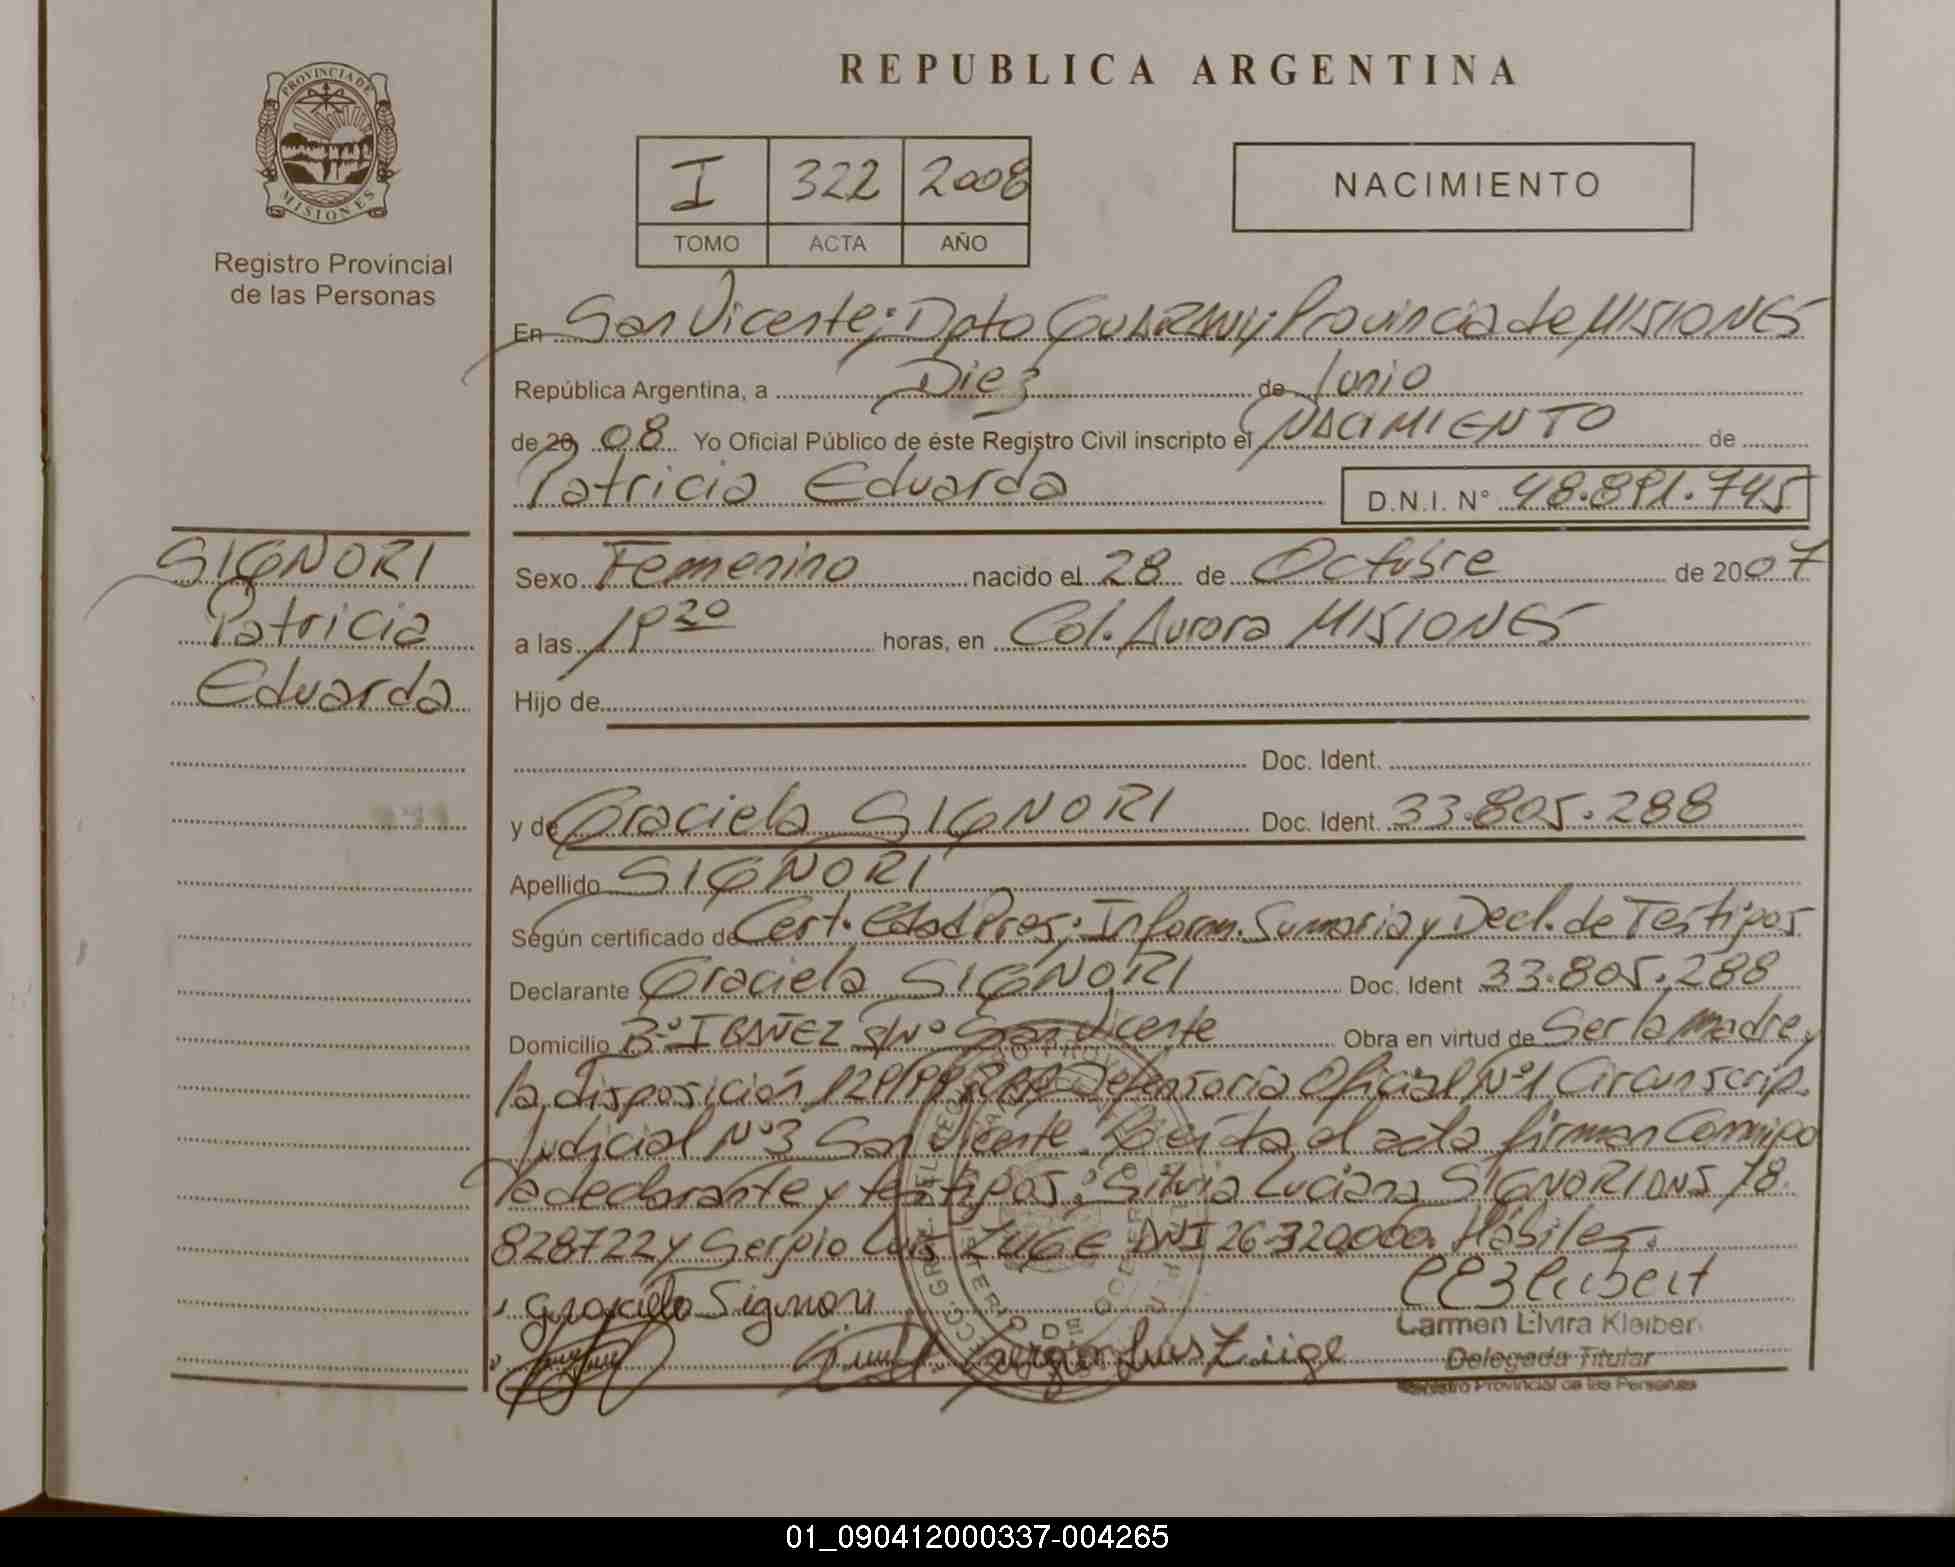 PROVINCIA DE
MISIONES
Registro Provincial
de las Personas
REPUBLICA ARGENTINA
I 322 2008
TOMO ACTA AÑO
NACIMIENTO
En San Vicente; Dpto GUARANI; Provincia de MISIONES
República Argentina, a Diez de Junio
de 20 08 Yo Oficial Público de éste Registro Civil inscripto el NACIMIENTO de
Patricia Eduarda D.N.I. N° 48.891.745
SIGNORI
Patricia
Eduarda
Sexo Femenino nacido el 28 de Octubre de 2007
a las 19 30 horas, en Col. Aurora MISIONES
Hijo de
Doc. Ident.
y de Graciela SIGNORI Doc. Ident. 33.805.288
Apellido SIGNORI
Según certificado de Cert. Edad Pres; Inform. Sumaria y Decl. de Testigos
Declarante Graciela SIGNORI Doc. Ident 33.805.288
Domicilio B° IBAÑEZ S/N° San Vicente Obra en virtud de Ser la madre y
la disposición Defensoria Oficial N°1 Circunscrip.
Judicial N°3 San Vicente. el acta firman Conmigo
la declarante y testigos: Silvia Luciana SIGNORI DNI 18.
828722 y Sergio Luis ZUGE DNI 26.320.000. Hábiles.
Graciela Signori
Sergio Luis Züge
Carmen Elvira Kleiber
Delegada Titular
Registro Provincial de las Personas
01_090412000337-004265